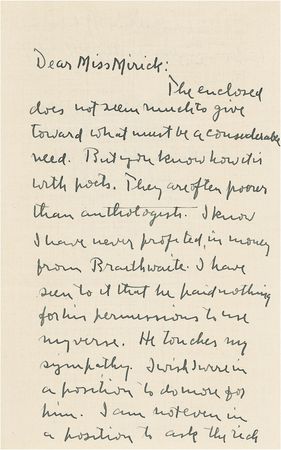 Dear Miss Mirick:
The enclosed
does not seem much to give
toward what must be a considerable
need. But you know how it is
with poets. They are often poorer
than anthologists. I know
I have never profited, in money
from Braithwaite. I have
seen to it that he paid nothing
for his permissions to use
my verse. He touches my
sympathy. I wish I were in
a position to do more for
him. I am not even in
a position to ask the rich